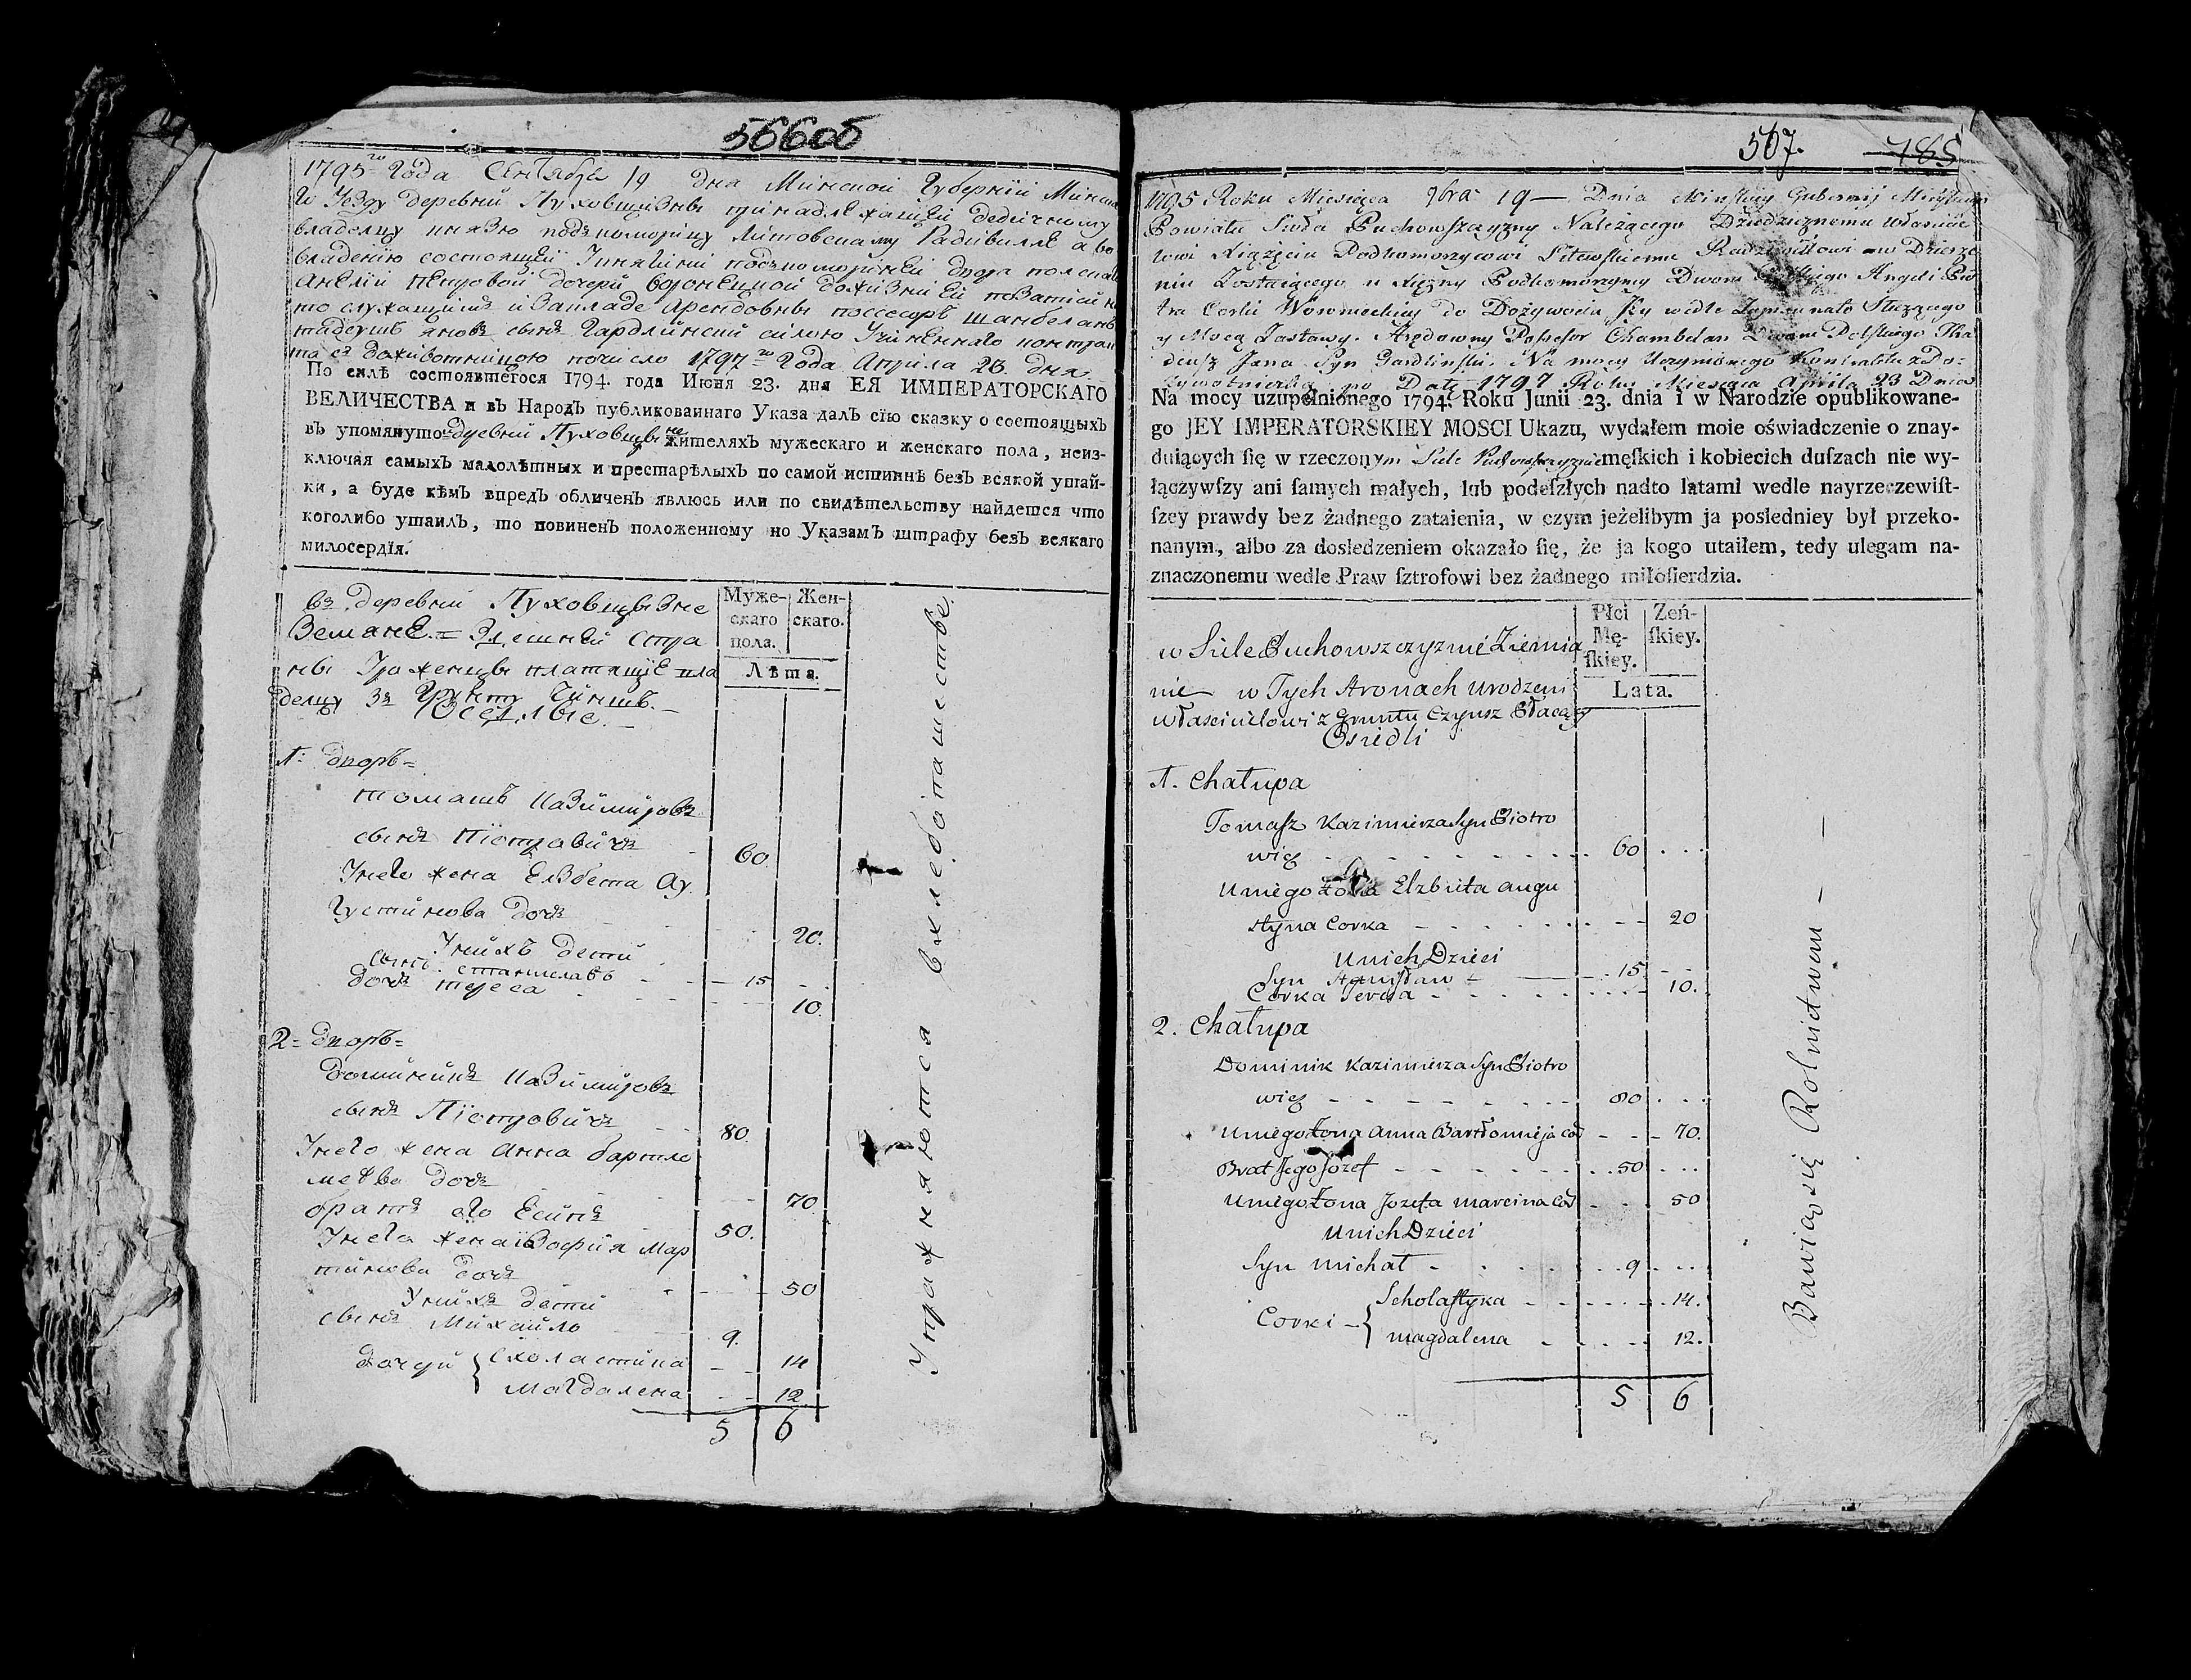 566об
1795го Года Сентября 19 дня Минской Губернїи Минска
го Уезду деревни Пуховщизны принадлежащей дедичному
владелцу князю подкоморицу Литовскому Радивилле а во
владенїю состоящей подкомориней двора полска
Анелїи дочери доживзней
то служащимъ и Закладе Арендовны поссесоръ шанбелянъ
тадеушъ яновъ сынъ Гардлинский силою Учиненнаго контрак
та съ доживотницою по число 1797го Года Априла 23. дня
По силѣ состоявшегося 1794. года Июня 23. дня ЕЯ ИМПЕРАТОРСКАГО
ВЕЛИЧЕСТВА и въ Народъ публикованнаго Указа далъ сїю сказку о состоящыхъ
въ упомянутой деревни Пуховщизне жителяхъ мужескаго и женскаго пола, неиз-
ключая самыхъ малолѣтныхъ и престарѣлыхъ по самой истиннѣ безъ всякой утай-
ки, а буде кѣмъ впредъ обличенъ явлюсь или по свидѣтельству найдется что
коголибо утаилъ, то повиненъ положенному по Указамъ штрафу безъ всякаго
милосердїя.
въ деревни Пуховщизне
Земяне = Здешней стра
ны Уроженцы платящїе вла
делцу За Грунту Чиншъ.
Оседлые.
Муже-
скаго
пола.
Жен-
скаго.
Лѣта.
1: дворъ =
томашъ Казимировъ
сынъ Пїотровичъ 60.
Унего жена Елзбета Ау
густинова дочь 20.
Унихъ дети
сынъ станиславъ 15
дочь тереса 10.
2 = дворъ =
доминикъ Казимировъ
сынъ Пїотровичъ 80.
Унего жена Анна бартло
меева дочь 70
братъ его 50.
Унего жена Мар
тинова дочь 50
Унихъ дети
сынъ Михайло 9.
дочери { схоластика 14
магдалена 12
5 6
Упражняются вхлебопашестве.
567. 785
1795 Roku Miesiąca 9bra 19 — Dnia Minskiey Gubernij Minskiego
Powiatu Sioła Puchowszczyzny Należącego Dziedzicznemu Własicie
lowi Xiążęciu Podkomorzycowi Litewskiemu Radziwiłłowi a w Dzierże
niu Zostaiącego u Xiężny Podkomorzyny Dworu Polskiego Angeli Pio
tra Corki do Dożywocia Jey wedle Służącego
y Mocą Zastawy. Arędowny Possesor Chambelan Dworu Polskiego Tha
deusz Jana Syn Gardliński. Na mocy Uczynionego Kontraktu z Do=
żywotniczką po Datę 1797 Roku Miesiąca Aprila 23 Dnia
Na mocy uzupełnionego 1794. Roku Junii 23. dnia i w Narodzie opublikowane-
go JEY IMPERATORSKIEY MOSCI Ukazu, wydałem moie oświadczenie o znay-
duiących ſię w rzeczonym Siele Puchowszczyznie męſkich i kobiecich duſzach nie wy-
łączywſzy ani ſamych małych, lub podeſzłych nadto latami wedle nayrzeczewiſt-
ſzey prawdy bez żadnego zataienia, w czym jeżelibym ja posledniey był przeko-
nanym, albo za dosledzeniem okazało ſię, że ja kogo utaiłem, tedy ulegam na-
znaczonemu wedle Praw ſztrofowi bez żadnego miłoſierdzia.
w Siele Puchowszczyznie Ziemia
nie w Tych Stronach Urodzeni
właścicielowi z Gruntu Czynsz Płacący
Osiedli
Płci
Mę-
ſkiey.
Zeń-
ſkiey.
Lata.
1. Chałupa
Tomasz Kazimierza Syn Piotro
wicz 60
Uniego Żona Elzbieta Augu
styna Corka 20
Unich Dzieci
Syn Stanisław 15
Corka Teresa 10.
2. Chałupa
Dominik Kazimierza Syn Piotro
wicz 80
Uniego Żona Anna Bartłomieja Cor 70.
Brat Jego Jozef 50
Uniego Żona Jozefa Marcina Cor 50
Unich Dzieci
Syn Michał 9
Corki { Scholastyka 14.
Magdalena 12.
5 6
Bawią się Rolnictwem —